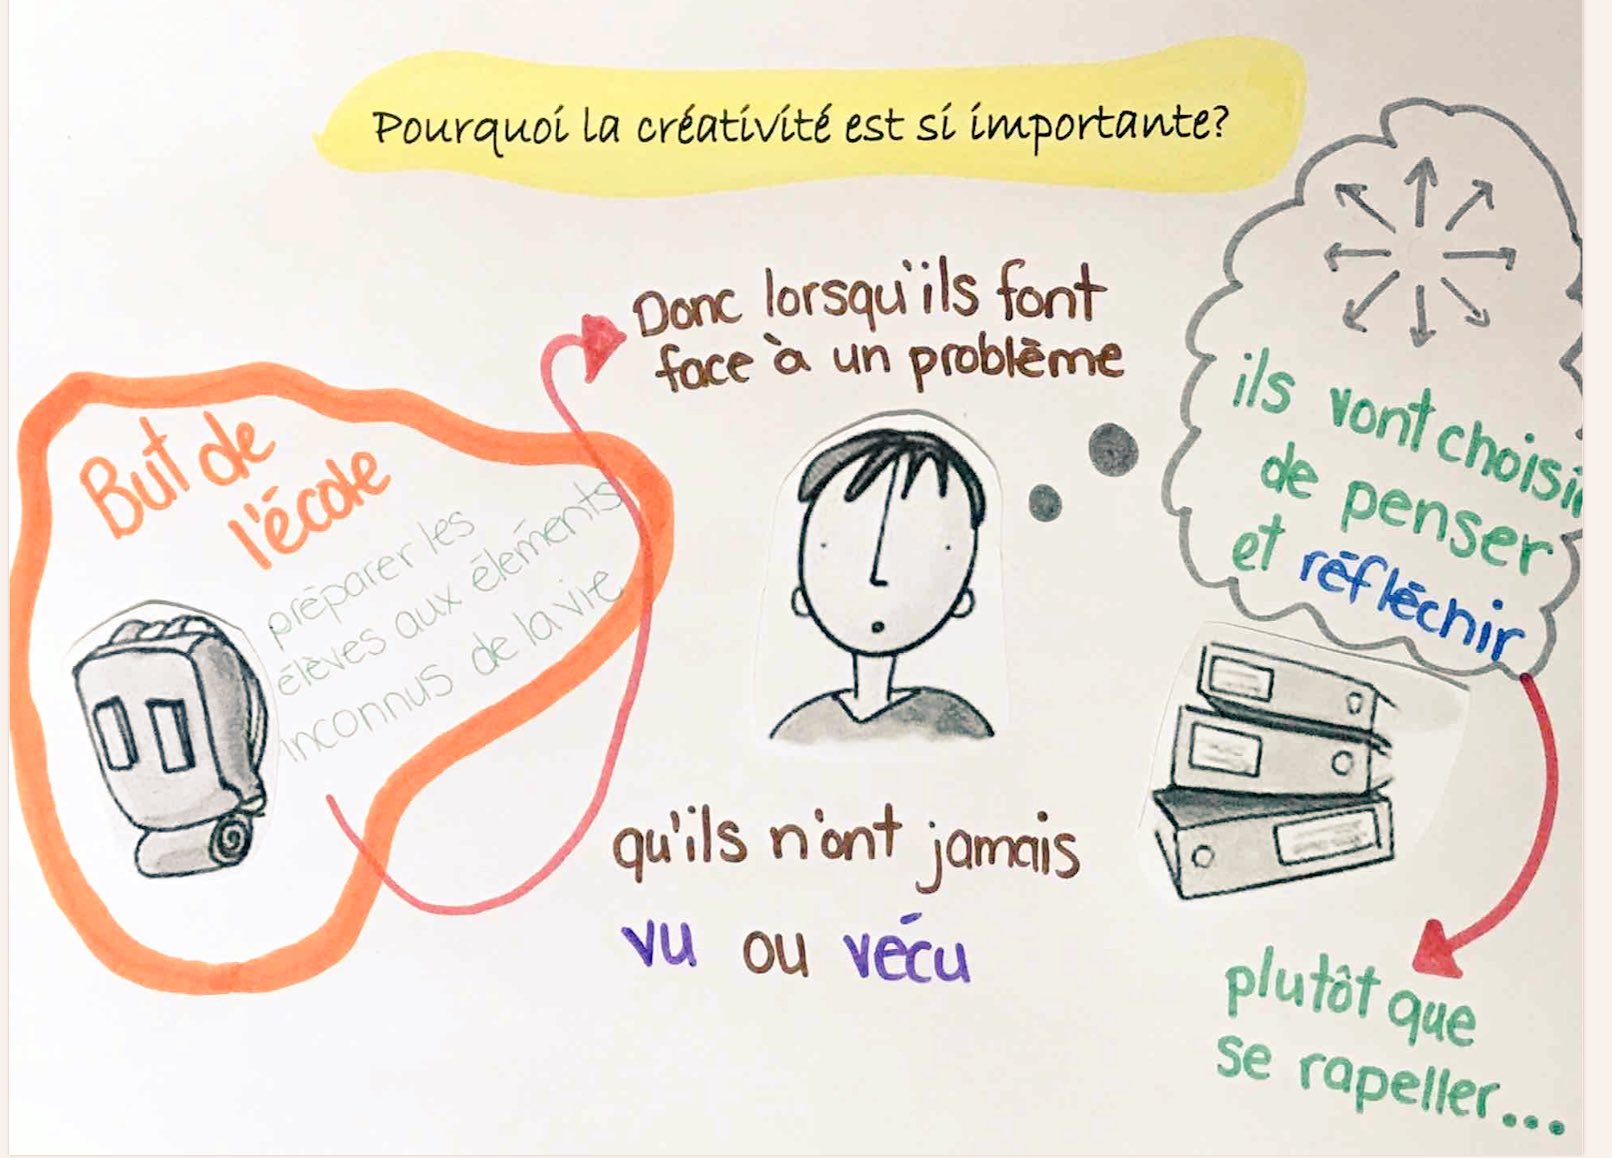 Pourquoi la créativité est si importante?
But de
l'école
préparer les
élèves aux éléments
inconnus de la vie
Donc lorsqu'ils font
face à un problème
qu'ils n'ont jamais
vu ou vécu
ils vont choisi
de penser
et réfléchir
plutôt que
se rapeller...